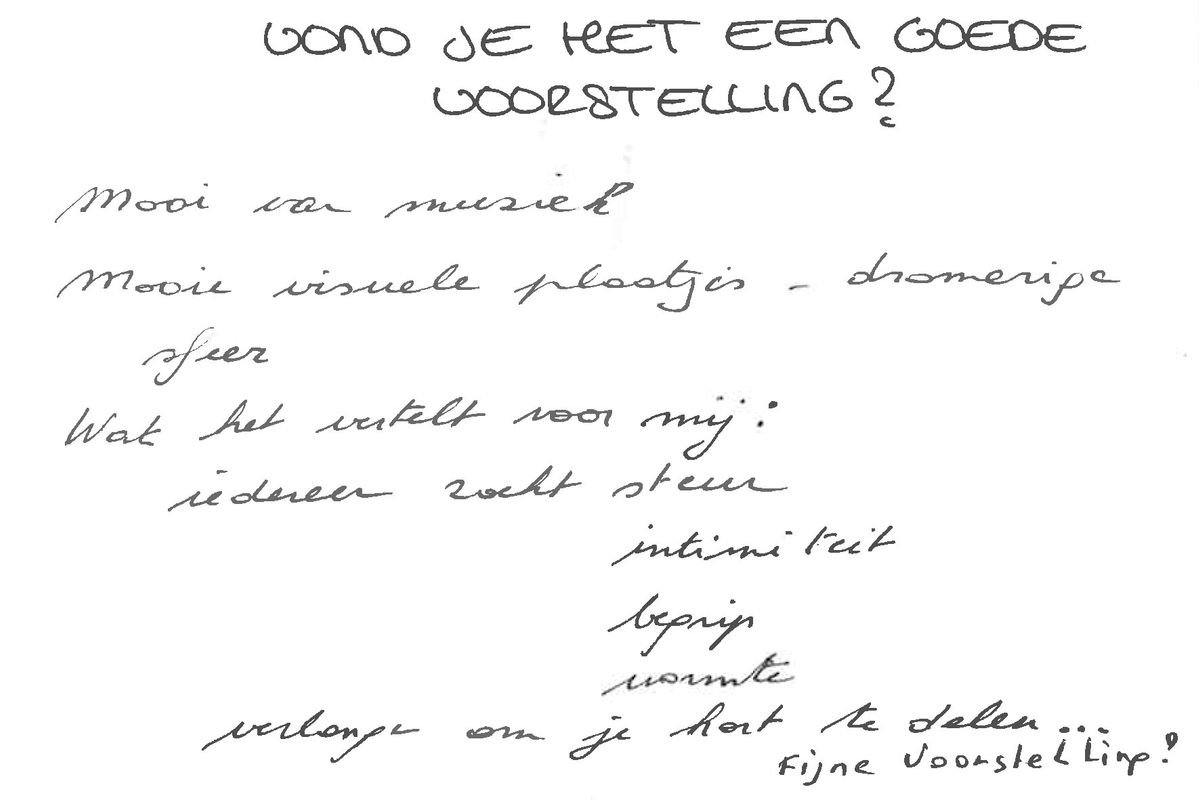 VOND JE HET EEN GOEDE
VOORSTELLING?
Mooi van muziek
Mooie visuele plaatjes - dromerige
sfeer
Wat het vertelt voor mij:
iedereen zoekt steun
intimiteit
begrip
warmte
verlangen om je hart te delen...
Fijne Voorstelling!